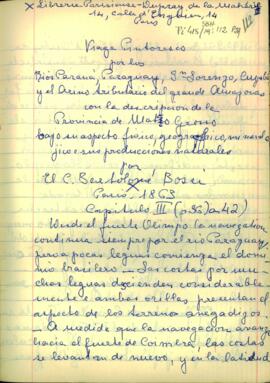 × Librerie Parisienne - Dupray de la Mahérie
14, Calle d'Enghien, 14
Paris
112
Viage Pintoresco
por los
Rios Paraná, Paraguay, Sn Lorenzo, Cuyabá
y el Arino tributario del grande Amazonas
con la descripcion de la
Provincia de Mato Groso
bajo su aspecto fisico, geografico, mineralo-
jico e sus producciones naturales
por
El C. Bartolomé Bossi
Paris 1863
Capitulo III (p 36 a 42)
Desde el fuerte Olimpo la navegation
continúa siempre por el rio Paraguay,
pero a pocas leguas comienza el domi-
nio brasilero — Las costas por mu-
chas leguas descienden considerable
mente e ambas orillas presentan el
aspecto de los terrenos anegadizos.
— A medida que la navegacion avanza
hacia el fuerte de Coimbra, las costas
se levantan de nuevo, y en la latitud